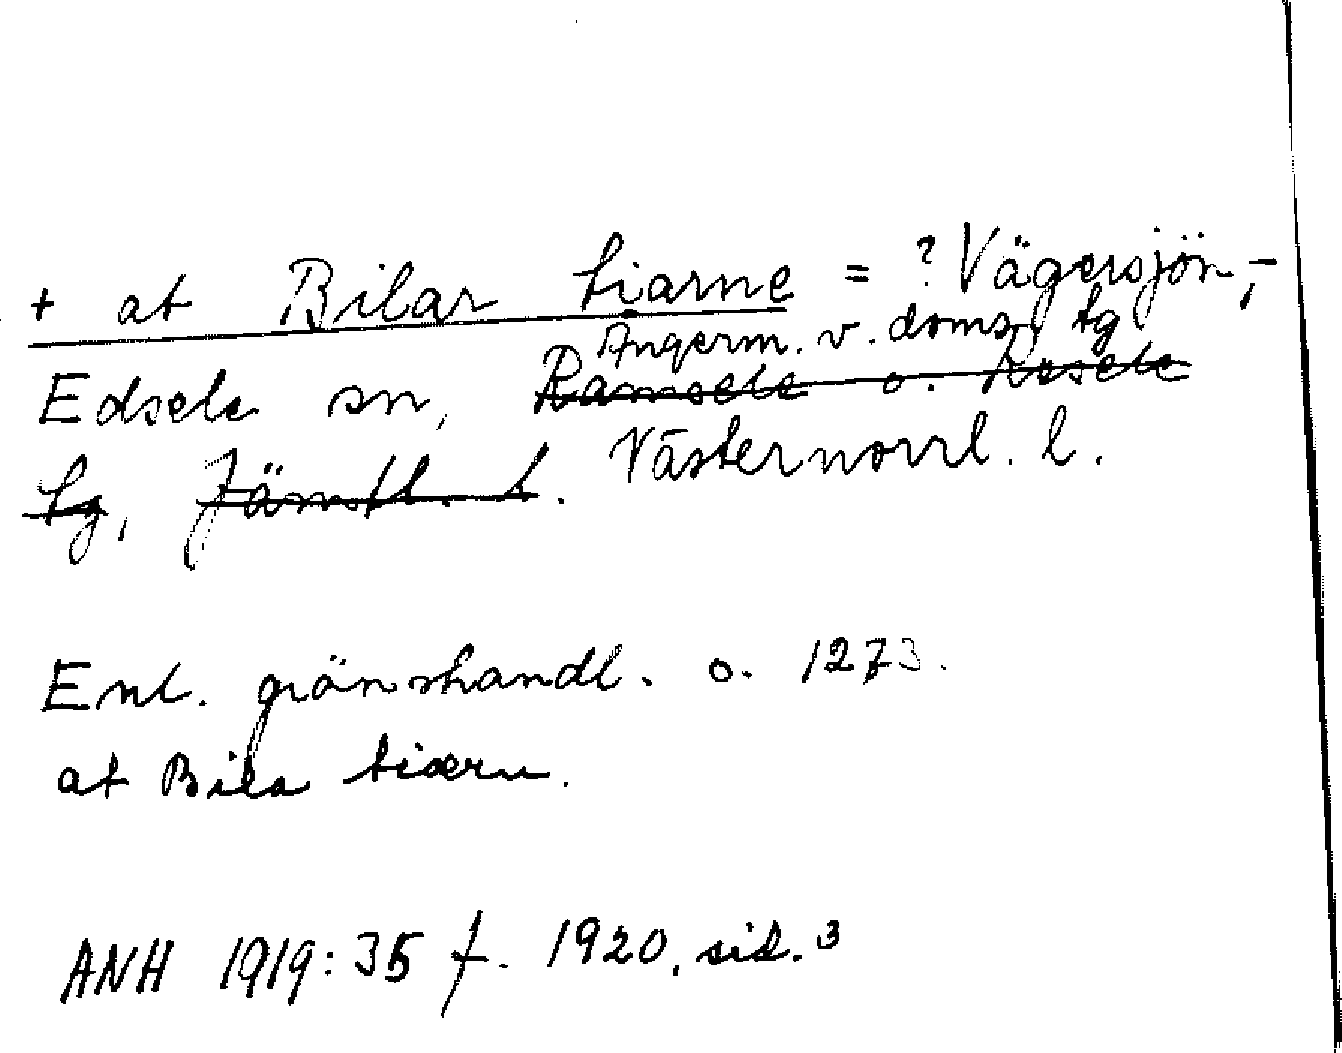 + at Bilar tiarne = ? Vägersjön,-
Ångerm. v. doms. tg
Edsele sn, Ramsele o. Resele
tg, Jämtl. l. Västernorrl. l.
Enl. gränshandl. o. 1273.
at Bila tiærn.
ANH 1919:35 f. 1920, sid. 3